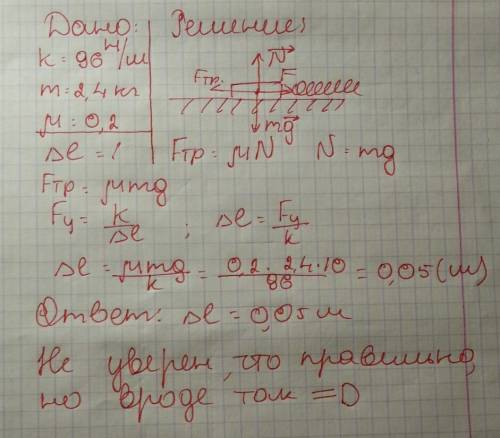 Дано: Решение:
k = 96 Н/м
m = 2,4 кг
μ = 0,2
Δl = ?
N
Fтр. F
mg
Fтр = μN N = mg
Fтр = μmg
Fу = k/Δl ; Δl = Fу/k
Δl = μmg/k = 0,2 · 2,4 · 10/96 = 0,05 (м)
Ответ: Δl = 0,05 м
Не уверен, что правильно,
но вроде так =D